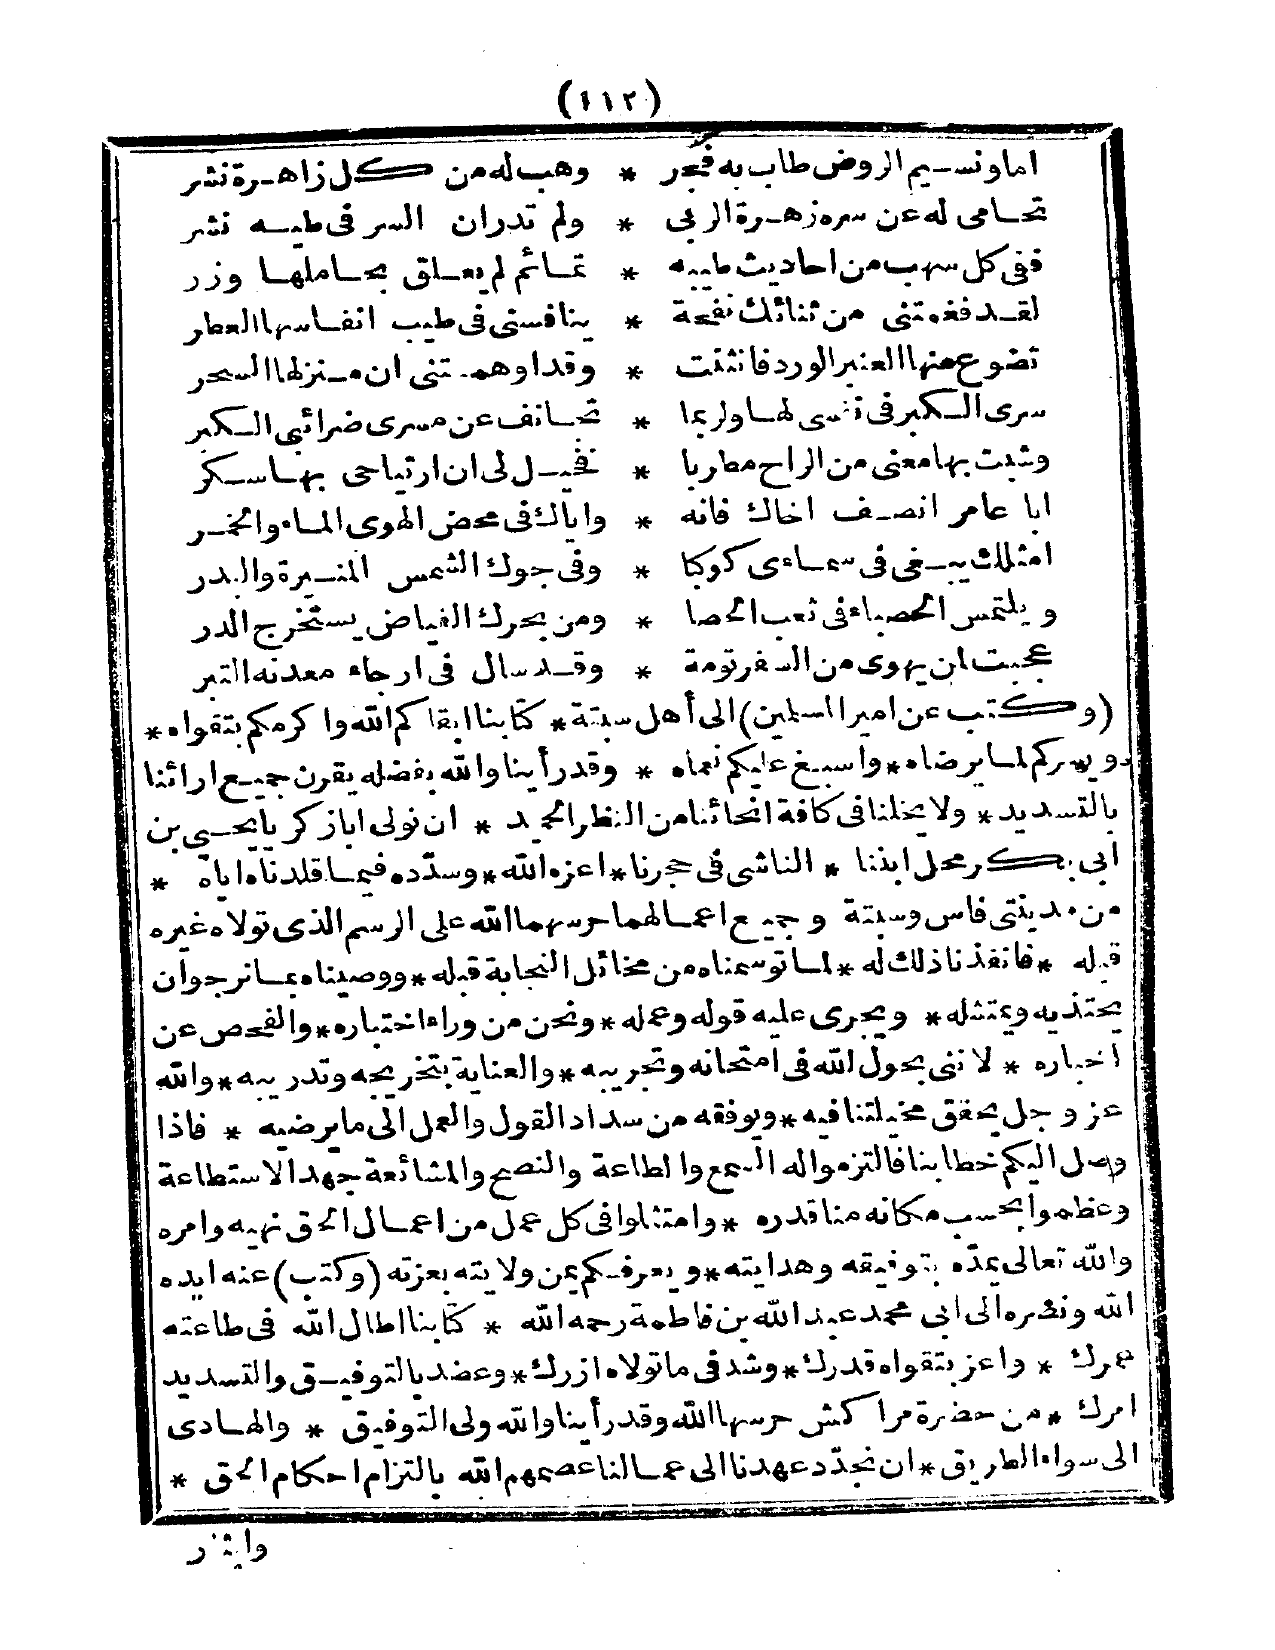 (١١٢)
اما ونسيم الروض طاب به فجر * وهب له من كل زاهرة نشر
تحامى له عن سره زهرة الربى * ولم تدران السر فى طيه نشر
ففى كل سهب من احاديث طيبه * تمائم لم يعلق بحاملها وزر
لقد فغمتنى من ثنائك نفحة * ينافسنى فى طيب انفاسها العطر
تضوع منها العنبر الورد فانثنت * وقد اوهمتنى ان منزلها السحر
سرى الكبر فى نفسى لها ولربما * تجانف عن مسرى ضرائبى الكبر
وشيت بها معنى من الراح مطربا * نخيل لى ان ارتياحى بها سكر
ابا عامر انصف اخاك فانه * واياك فى محض الهوى الماء والخمر
امثلك يبغى فى سماءى كوكبا * وفى جوك الشمس المنيرة والبدر
ويلتمس الحصباء فى ثعب الحصا * ومن بحرك الفياض يستخرج الدر
عجبت لمن يهوى من الصفر تومة * وقد سال فى ارجاء معدنه التبر
(وكتب عن امير المسلمين) الى أهل سبتة * كتابنا ابقاكم الله واكرمكم بتقواه *
ويسركم لما يرضاه * واسبغ عليكم نعماه * وقد رأينا والله بفضله يقرن جميع ارائنا
بالتسديد * ولا يخلنا فى كافة انحائنا من النظر الحميد * ان نولى ابا زكريا يحيى بن
أبى بكر محل ابننا * الناشى فى حجرنا * اعزه الله * وسدّده فيما قلدناه اياه *
من مدينتى فاس وسبتة وجميع اعمالهما حرسهما الله على الرسم الذى تولاه غيره
قبله * فانفذنا ذلك له * لما توسمناه من مخائل النجابة قبله * ووصيناه بما نرجو أن
يحتذيه ويمتثله * ويجرى عليه قوله وعمله * ونحن من وراء اختباره * والفحص عن
أخباره * لا ننى بحول الله فى امتحانه وتجريبه * والعناية بتخريجه وتدريبه * والله
عز وجل يحقق مخيلتنا فيه * ويوفقه من سداد القول والعمل الى ما يرضيه * فاذا
وصل اليكم خطابنا فالتزموا له السمع والطاعة والنصح والمشائعة جهد الاستطاعة
وعظموا بحسب مكانه منا قدره * وامتثلوا فى كل عمل من اعمال الحق نهيه وامره
والله تعالى يمدّه بتوفيقه وهدايته * ويعرفكم يمن ولايته بعزته (وكتب) عنه ايده
الله ونصره الى ابى محمد عبد الله بن فاطمة رحمه الله * كتابنا اطال الله فى طاعته
عمرك * واعز بتقواه قدرك * وشد فى ما تولاه ازرك * وعضد بالتوفيق والتسديد
امرك * من حضرة مراكش حرسها الله وقد رأينا والله ولى التوفيق * والهادى
الى سواء الطريق * ان نجدّد عهدنا الى عمالنا عصمهم الله بالتزام احكام الحق *
وايثار